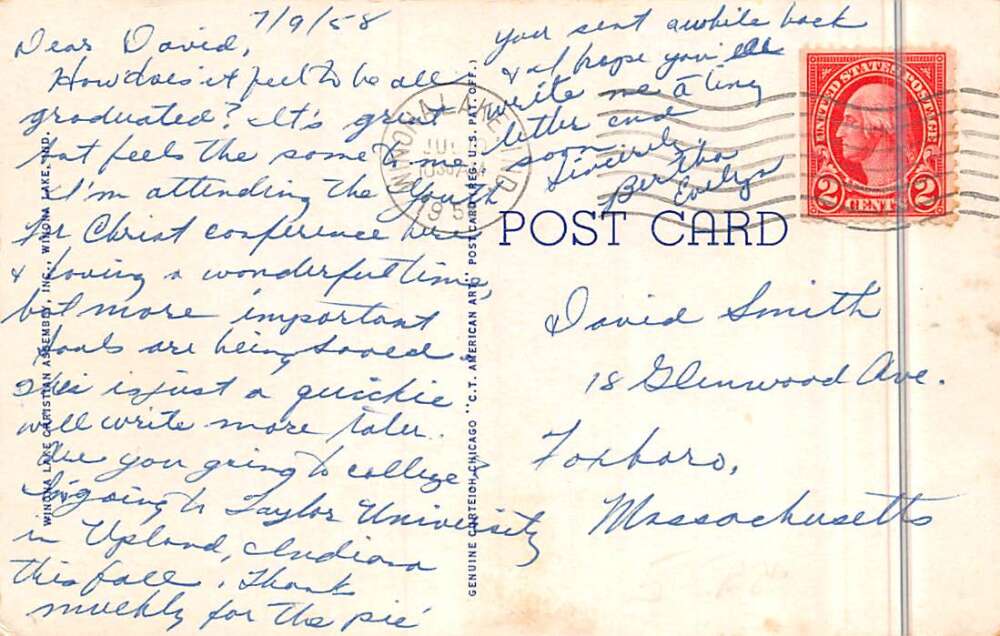 7/9/58
Dear David,
How does it feel to be all
graduated? It's great
but feels the same to me.
I'm attending the Youth
for Christ conference here
& having a wonderful time,
but more important
souls are being saved.
This is just a quickie
will write more later.
Are you going to college?
I'm going to Taylor University
in Upland, Indiana
this fall. Thank
muchly for the pic
you sent awhile back
& I hope you'll
write me a long
letter and
soon.
Sincerely,
Bertha
Evelyn
WINONA LAKE CHRISTIAN ASSEMBLY, INC., WINONA LAKE, IND.
GENUINE CURTEICH-CHICAGO "C.T. AMERICAN ART" POST CARD (REG. U.S. PAT. OFF.)
WINONA LAKE IND.
UNITED STATES POSTAGE
2 CENTS 2
POST CARD
David Smith
18 Glenwood Ave.
Foxboro,
Massachusetts